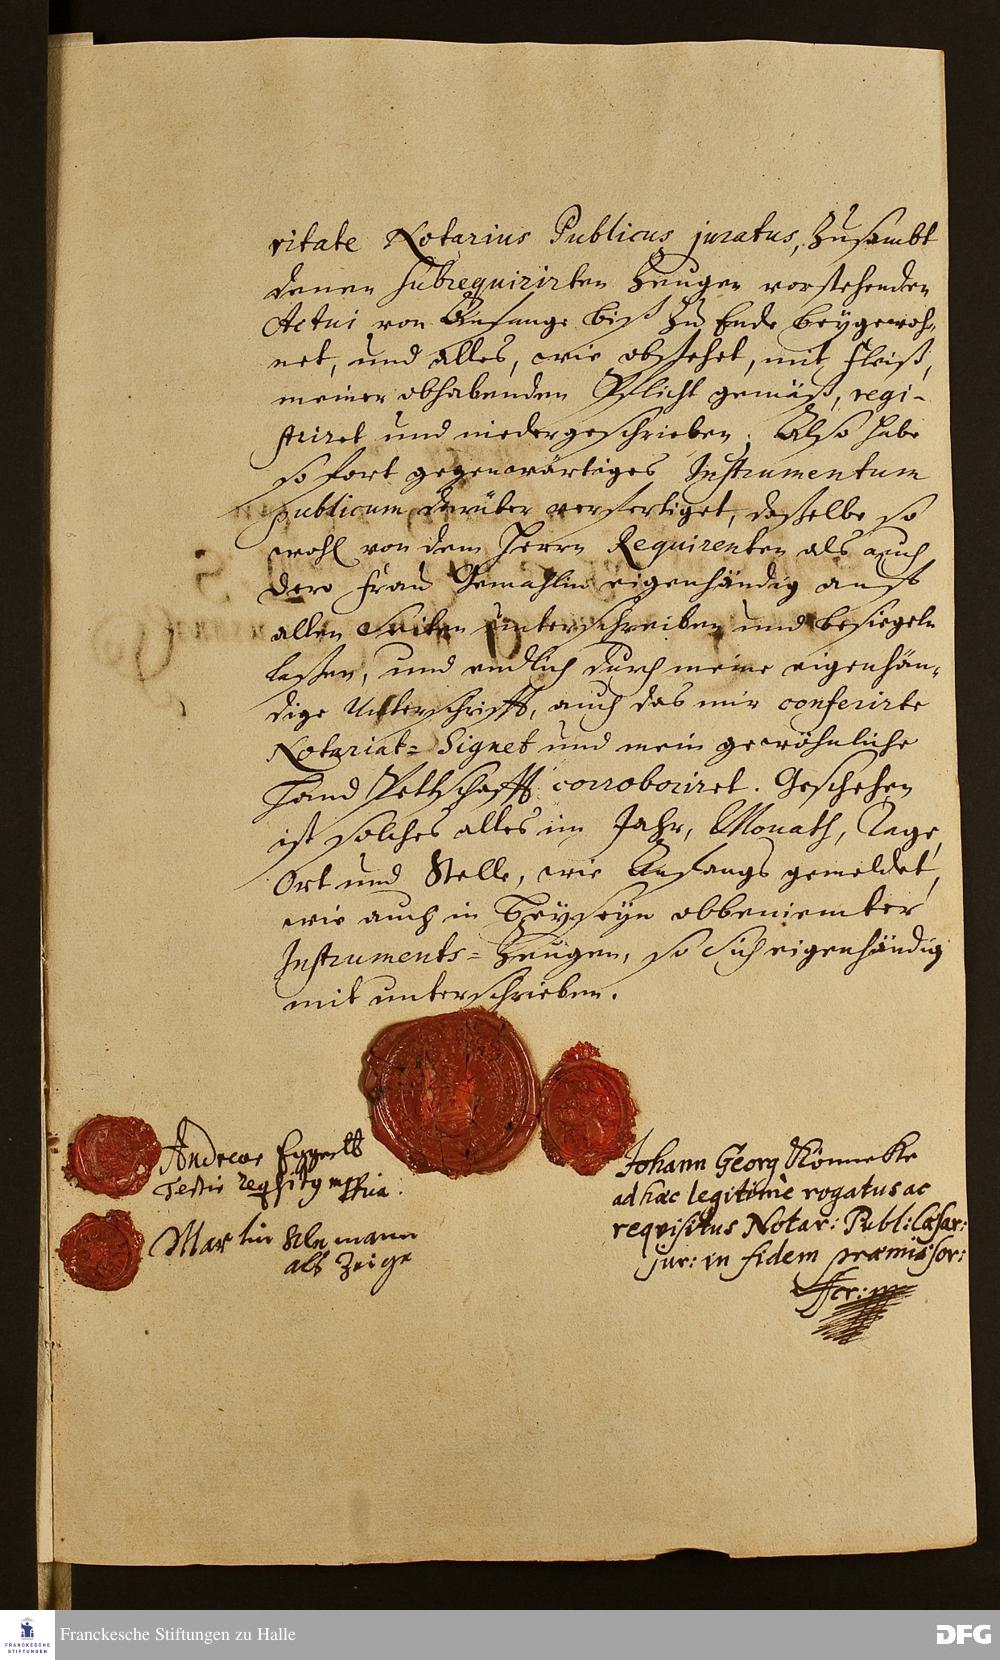 ritate Notarius Publicus juratus, Zusambt
denen subrequirirten Zeugen vorstehenden
Actui von Anfange biß zu Ende beygewoh-
net, und alles, wie obstehet, mit Fleiß,
meiner obhabenden Pflicht gemäß, regi-
striret und niedergeschrieben. Also habe
so fort gegenwärtiges Instrumentum
publicum darüber verfertiget, daßelbe so
wohl von dem Herrn Requirenten als auch
dero Frau Gemahlin eigenhändig auf
allen Seiten unterschreiben und besiegeln
laßen, und endlich durch meine eigenhän-
dige Unterschrifft, auch das mir conferirte
Notariat-Signet und mein gewöhnliche
Hand Pettschafft corroboriret. Geschehen
ist solches alles im Jahr, Monath, Tage,
Ort und Stelle, wie Anfangs gemeldet,
wie auch in Beyseyn obbeniemter
Instruments-Zeugen, so sich eigenhändig
mit unterschrieben.
Andreas
Testis
Martin Klemann
als Zeige
Johann Georg Könneke
ad hæc legitimè rogatus ac
reqvisitus Notar: Publ: Cæsar:
jur: in fidem præmissor:
Franckesche Stiftungen zu Halle
FRANCKESCHE
STIFTUNGEN
DFG